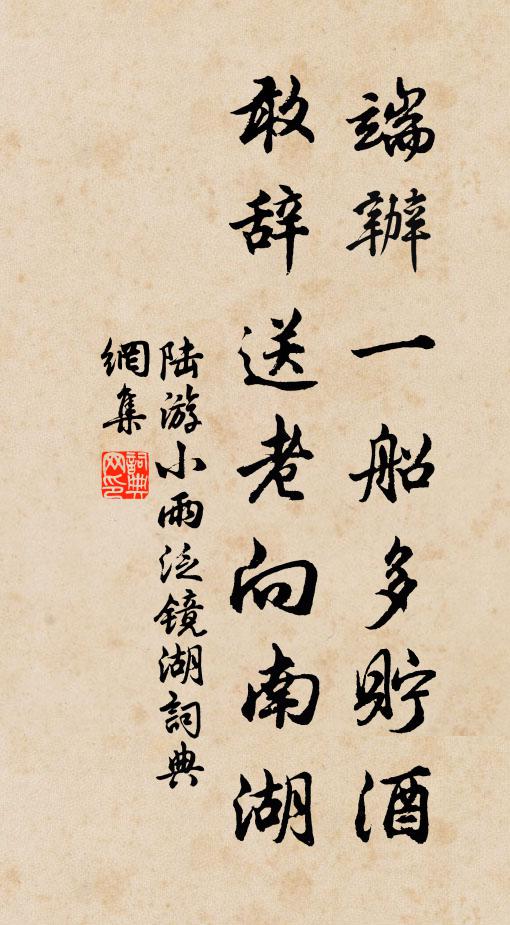 端辦一船多貯酒
敢辞送老向南湖
陆游小雨泛镜湖詞典
網集
詞典網印